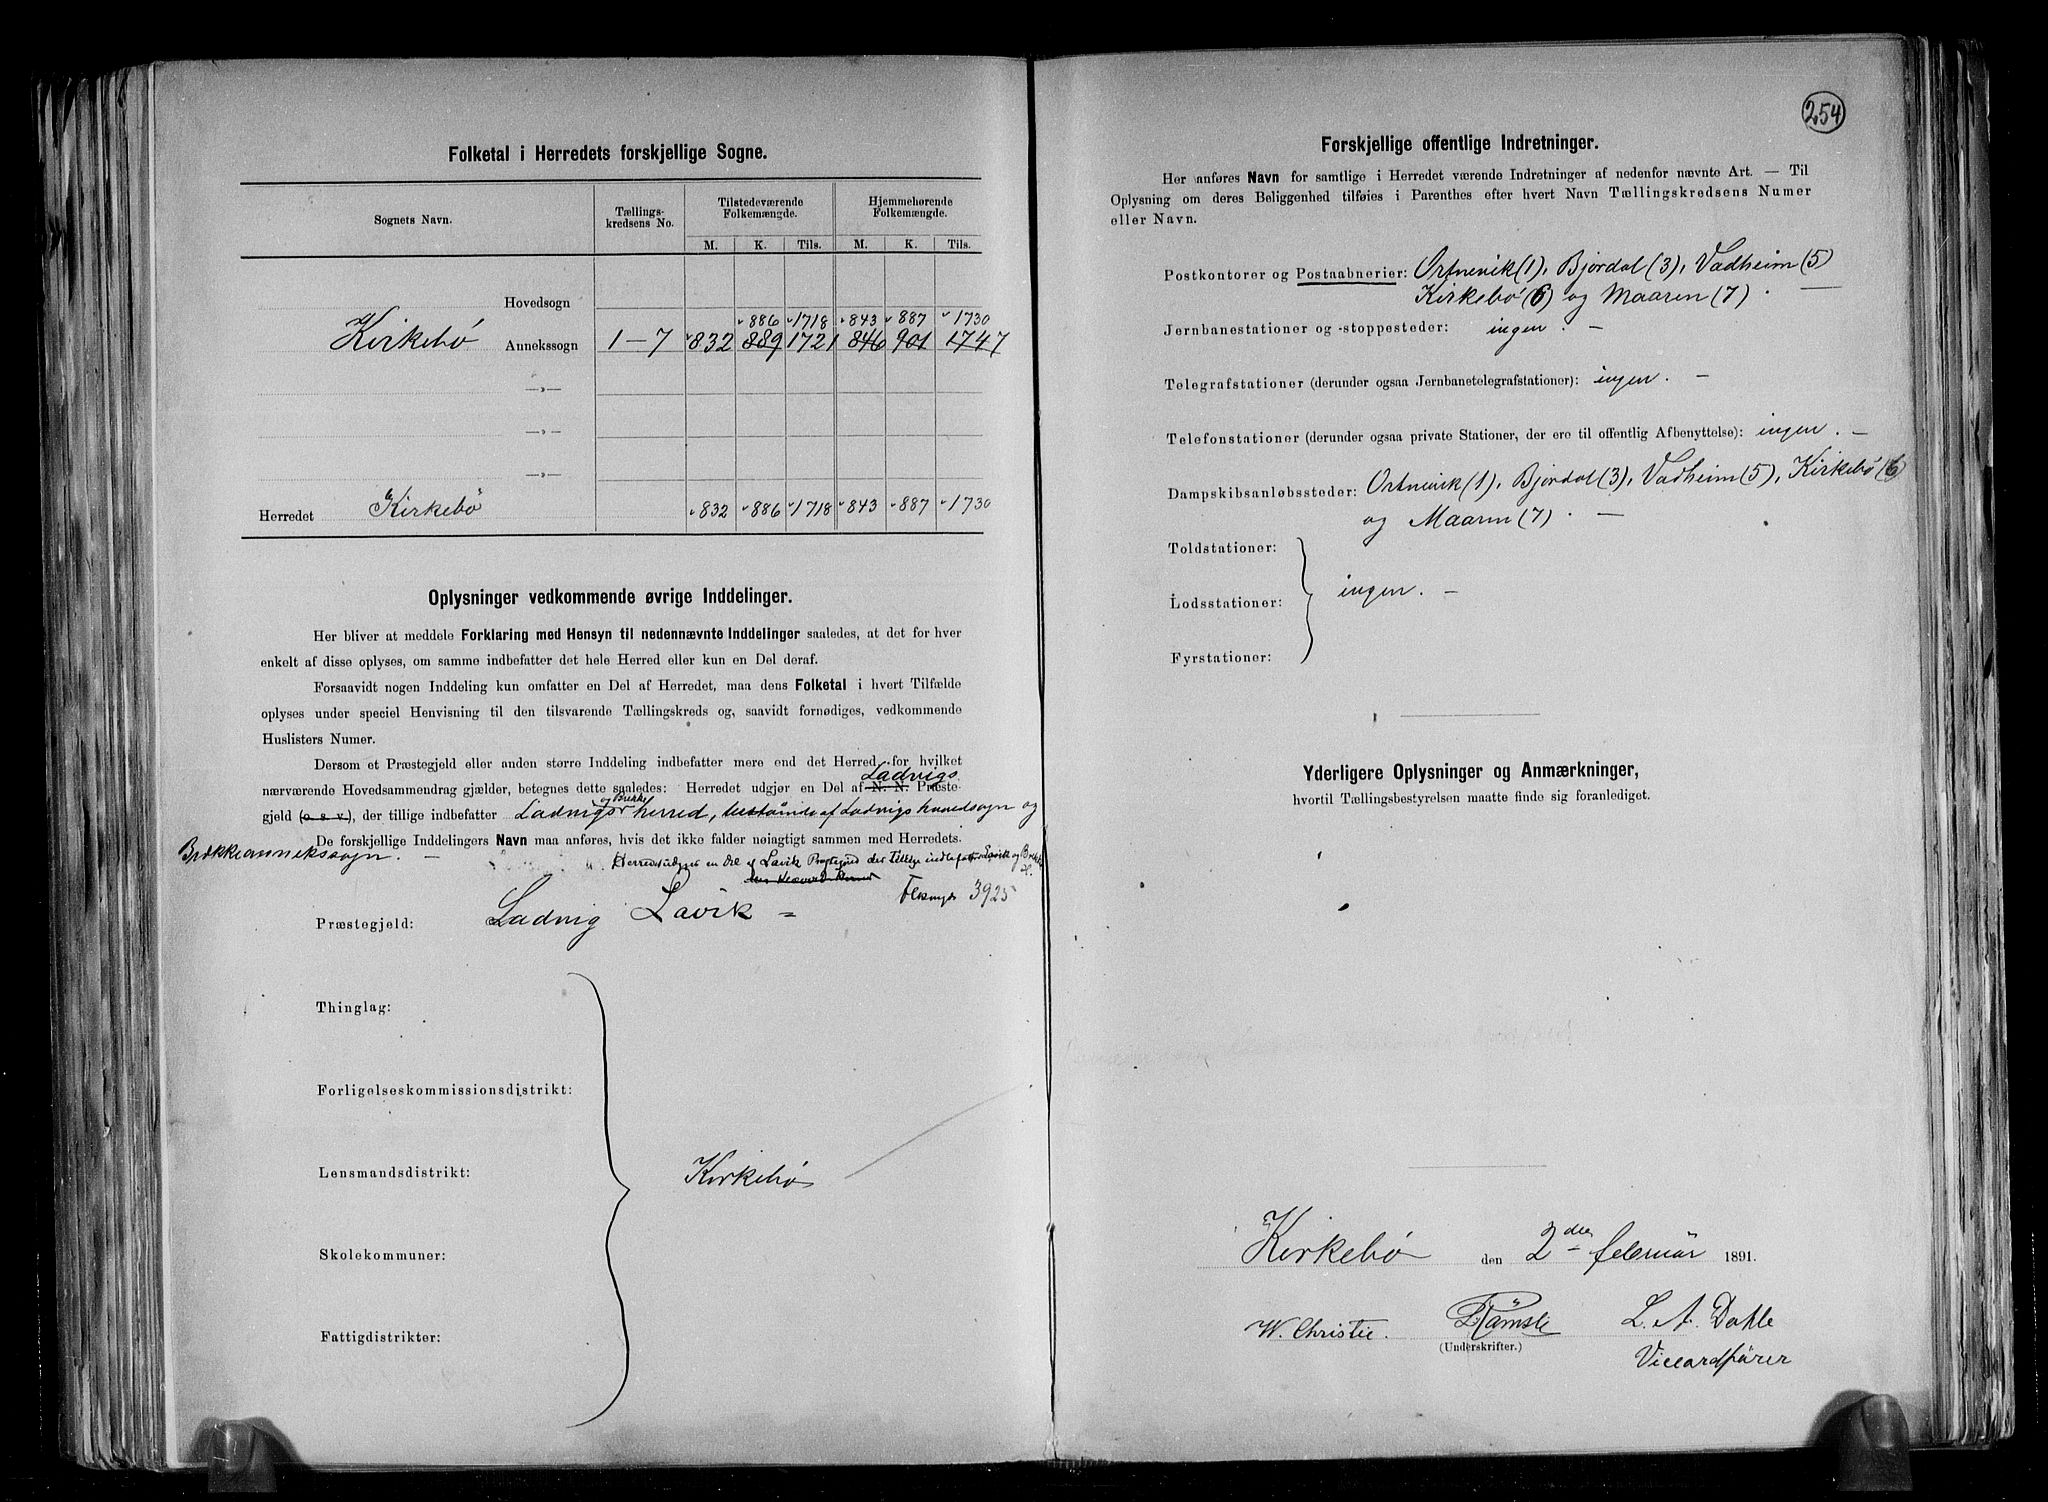 Folketal i Herredets forskjellige Sogne.
Sognets Navn. Tællings-kredsens No. Tilstedeværende Folkemængde. Hjemmehørende Folkemængde.
M. K. Tils. M. K. Tils.
Hovedsogn
886 1718 843 887 1730
Kirkebø Annekssogn 1-7 832 889 1721 846 901 1747
—»—
—»—
—»—
Herredet Kirkebø 832 886 1718 843 887 1730
Oplysninger vedkommende øvrige Inddelinger.
Her bliver at meddele Forklaring med Hensyn til nedennævnte Inddelinger saaledes, at det for hver
enkelt af disse oplyses, om samme indbefatter det hele Herred eller kun en Del deraf.
Forsaavidt nogen Inddeling kun omfatter en Del af Herredet, maa dens Folketal i hvert Tilfælde
oplyses under speciel Henvisning til den tilsvarende Tællingskreds og, saavidt fornødiges, vedkommende
Huslisters Numer.
Dersom et Præstegjeld eller anden større Inddeling indbefatter mere end det Herred, for hvilket
Ladvigs
nærværende Hovedsammendrag gjælder, betegnes dette saaledes: Herredet udgjør en Del af N. N. Præste-
og Brekke
gjeld (o. s. v.), der tillige indbefatter Ladvigs herred, bestaaende af Ladvigs hovedsogn og
De forskjellige Inddelingers Navn maa anføres, hvis det ikke falder nøiagtigt sammen med Herredets.
Brekkeannekssogn. —
Herredet udgjør en Del af Lavik Præstegjeld der Tillige indbefatter Lavik og Brekke
H.
Folkemgd 3925
Præstegjeld: Ladvig Lavik =
Thinglag:
Forligelseskommissionsdistrikt:
Lensmandsdistrikt: Kirkebø
Skolekommuner:
Fattigdistrikter:
254
Forskjellige offentlige Indretninger.
Her anføres Navn for samtlige i Herredet værende Indretninger af nedenfor nævnte Art. — Til
Oplysning om deres Beliggenhed tilføies i Parenthes efter hvert Navn Tællingskredsens Numer
eller Navn.
Postkontorer og Postaabnerier: Ortnevik (1), Bjordal (3), Vadheim (5)
Kirkebø (6) og Maaren (7). —
Jernbanestationer og -stoppesteder: ingen. —
Telegrafstationer (derunder ogsaa Jernbanetelegrafstationer): ingen. —
Telefonstationer (derunder ogsaa private Stationer, der ere til offentlig Afbenyttelse): ingen. —
Dampskibsanløbssteder: Ortnevik (1), Bjordal (3), Vadheim (5), Kirkebø (6)
og Maaren (7). —
Toldstationer:
Lodsstationer: ingen. —
Fyrstationer:
Yderligere Oplysninger og Anmærkninger,
hvortil Tællingsbestyrelsen maatte finde sig foranlediget.
Kirkebø den 2den februar 1891.
W. Christie. L. A. Dahle
(Underskrifter.)
Viceordfører